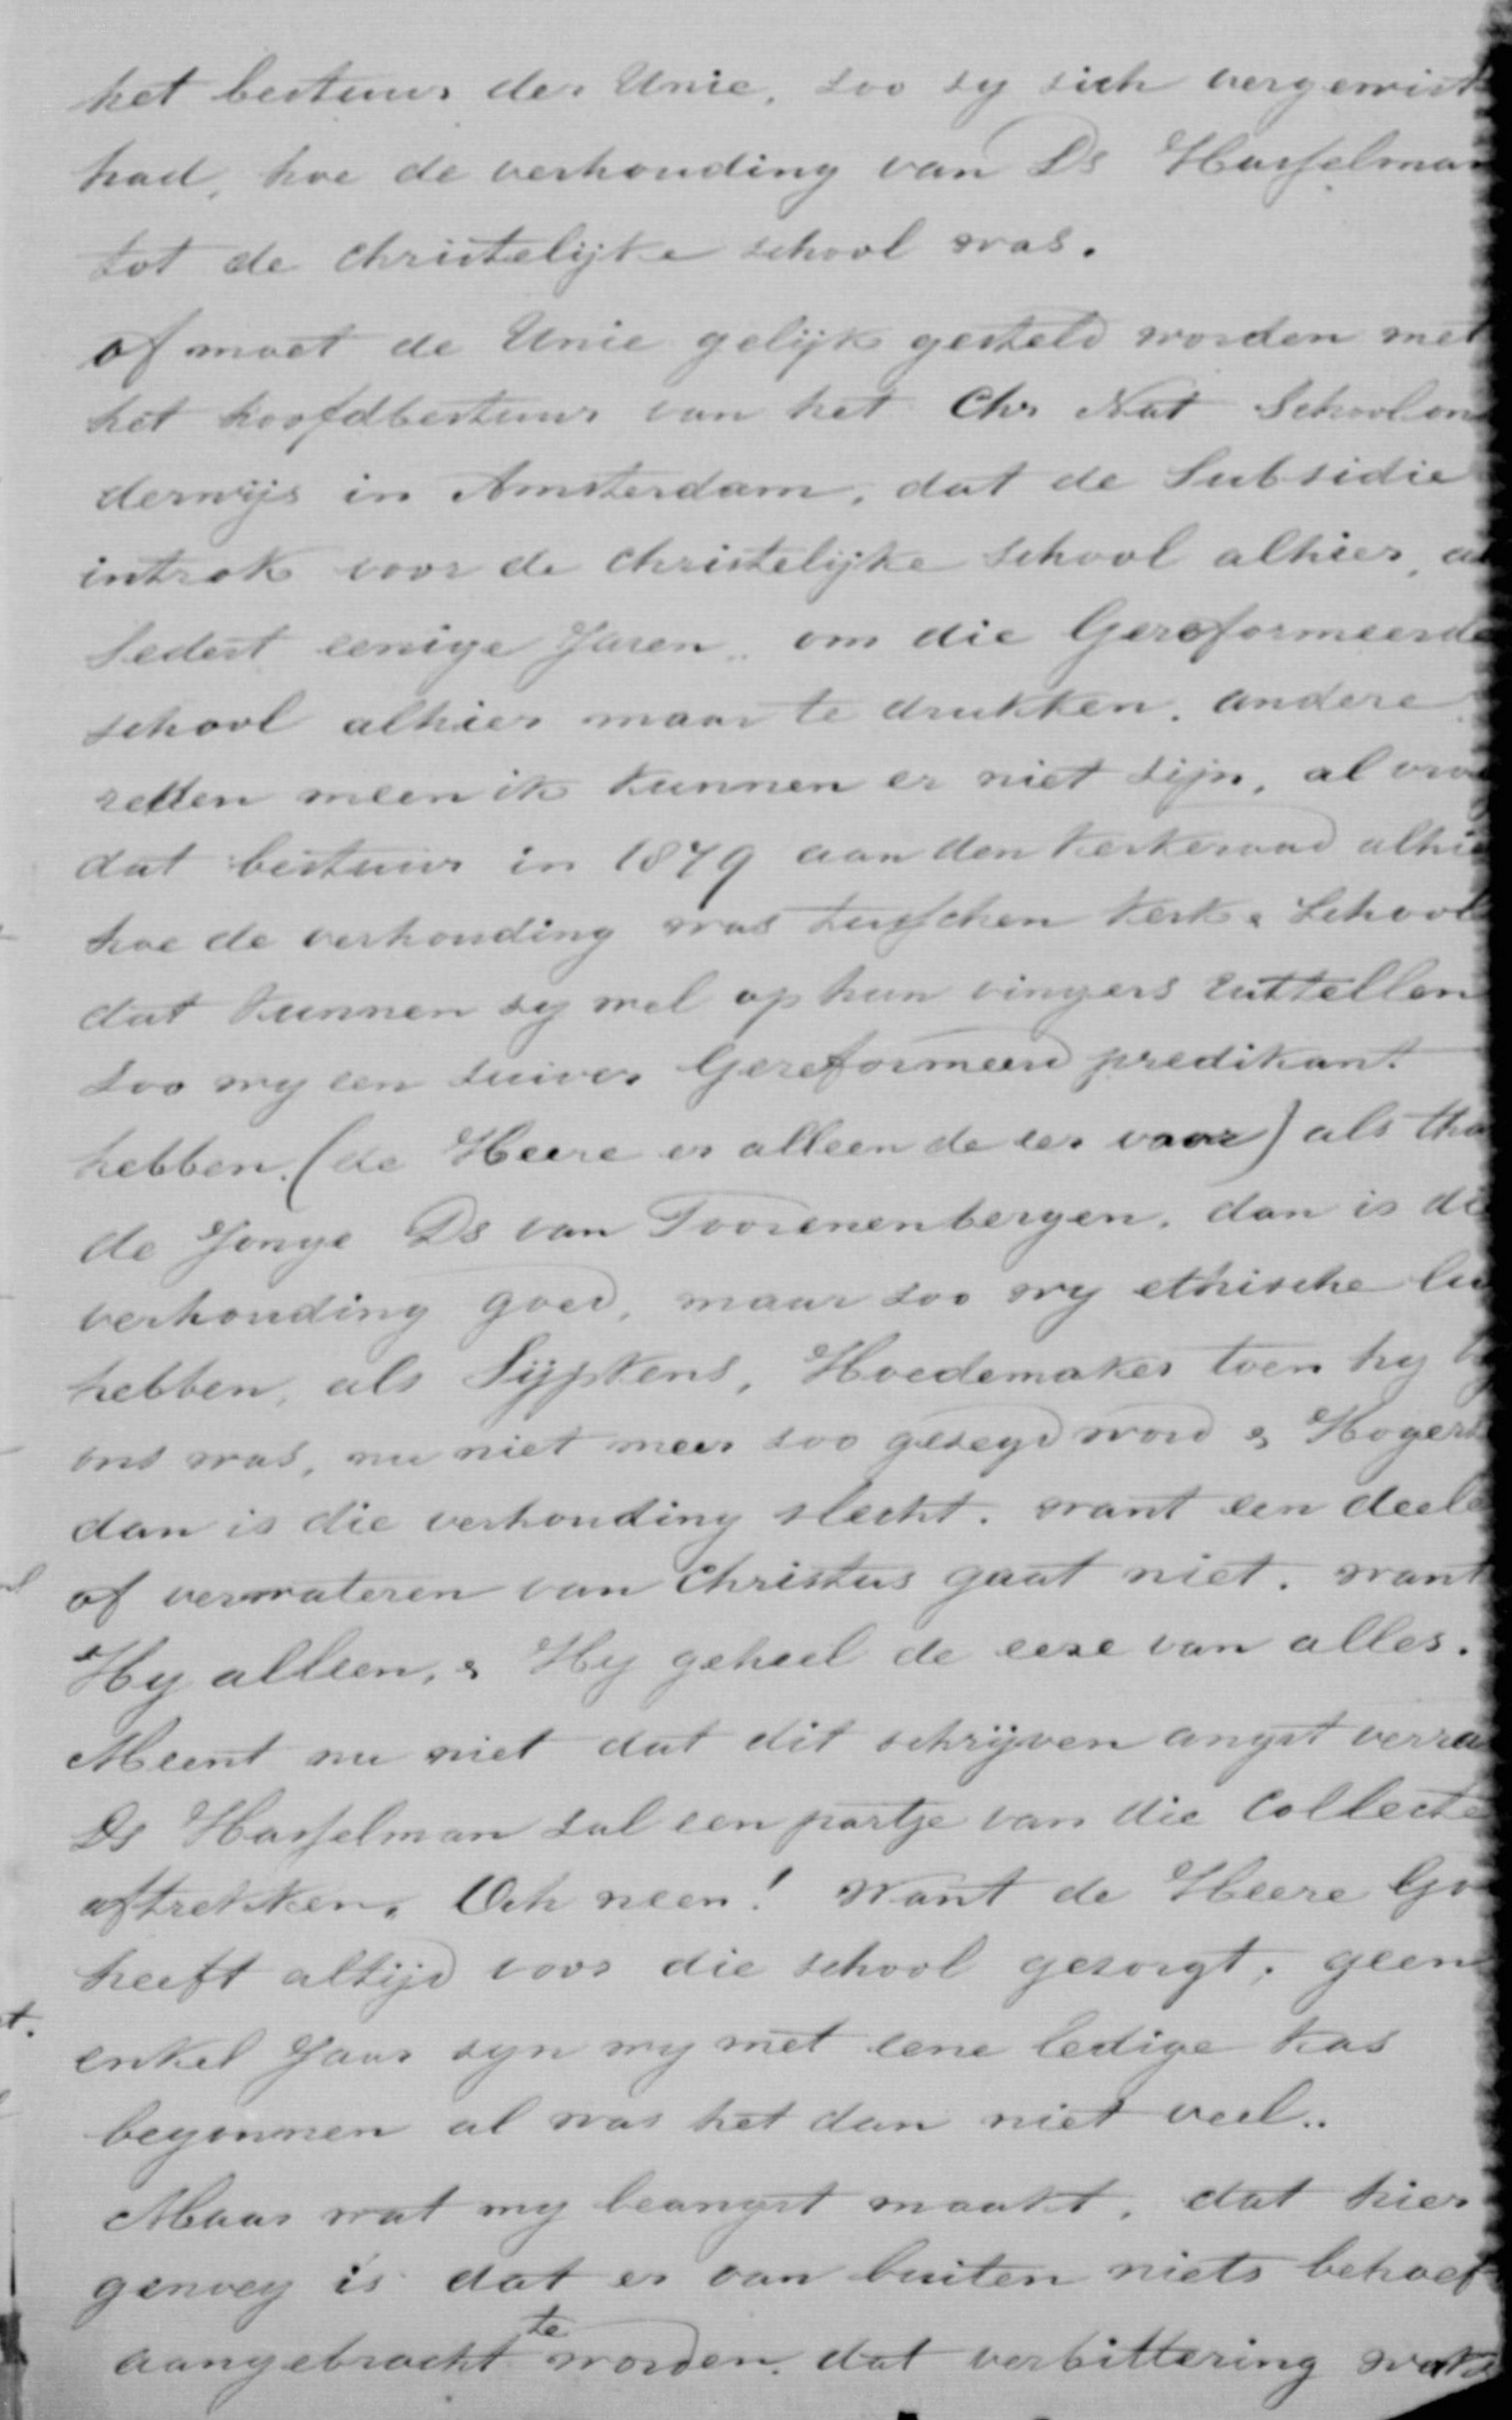 het bestuur der Unie, soo sy sich vergewist
had, hoe de verhouding van Ds Hasselman
tot de christelijke school was.
of moet de Unie gelijk gesteld worden met
het hoofdbestuur van het Chr Nat Schoolon
derwijs in Amsterdam, dat de Subsidie
introk voor de christelijke school alhier, al
sedert eenige Jaren.. om die Gereformeerde
school alhier maar te drukken. andere
redden meen ik kunnen er niet sijn, al vroeg
dat bestuur in 1879 aan den kerkeraad alhie
hoe de verhouding was tusschen kerk & School
dat kunnen sy wel op hun vingers uittellen
soo wy een suiver Gereformeerd predikant
hebben. (de Heere er alleen de eer voor) als tha
de Jonge Ds van Toorenenbergen, dan is die
verhouding goed, maar soo wy ethische lui
hebben, als Sijpkens, Hoedemaker toen hy by
ons was, nu niet meer soo gesegd word & Hogerz
dan is die verhouding slecht. want een deele
of verwateren van Christus gaat niet. want
Hy alleen, & Hy geheel de eere van alles.
Meent nu niet dat dit schrijven angst verra
Ds Hasselman sal een partje van die Collecte
aftrekken. Och neen! Want de Heere Go
heeft altijd voor die school gesorgt. geen
enkel Jaar syn wy met eene ledige kas
begonnen al was het dan niet veel..
Maar wat my beangst maakt, dat hier
genoeg is dat er van buiten niets behoef
aangebracht te worden. dat verbittering